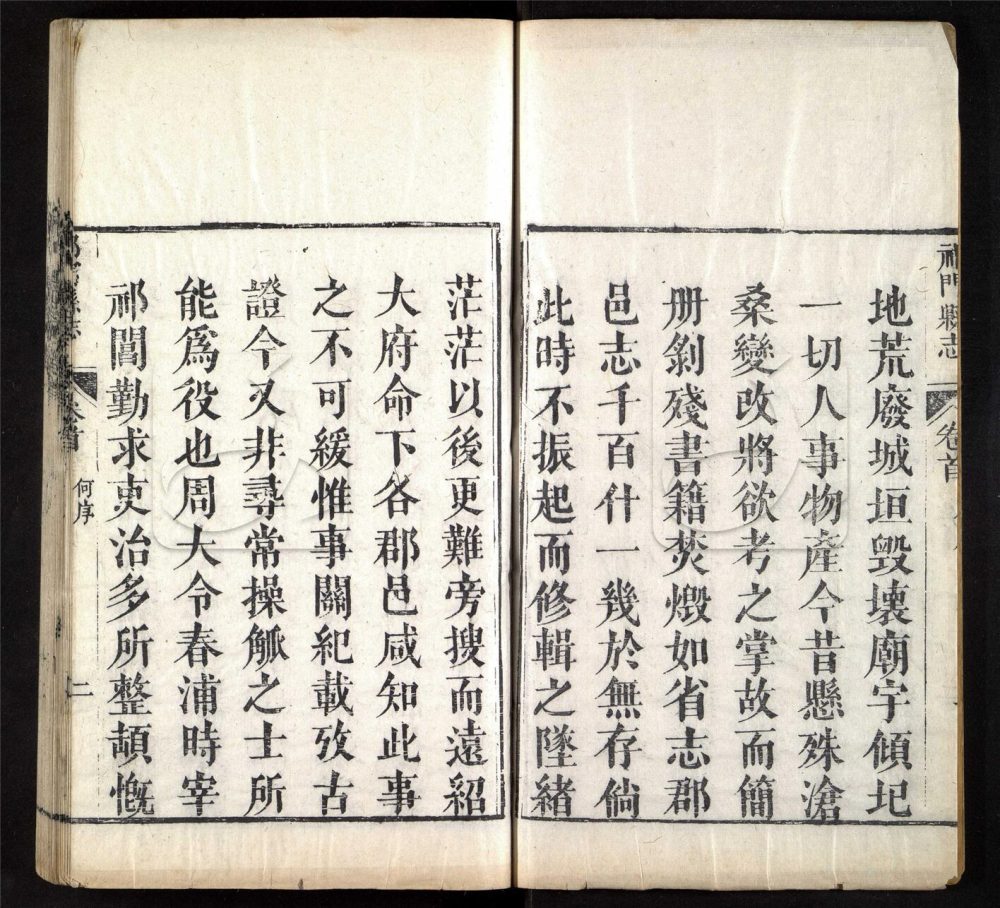 祁門縣志
卷首
地荒廢城垣毀壞廟宇傾圮
一切人事物產今昔懸殊滄
桑變改將欲考之掌故而簡
册剝殘書籍焚燬如省志郡
邑志千百什一幾於無存倘
此時不振起而修輯之墜緒
茫茫以後更難旁搜而遠紹
大府命下各郡邑咸知此事
之不可緩惟事關紀載攷古
證今又非尋常操觚之士所
能爲役也周大令春浦時宰
祁閶勤求吏治多所整頓慨
縣志
卷首
何序
二